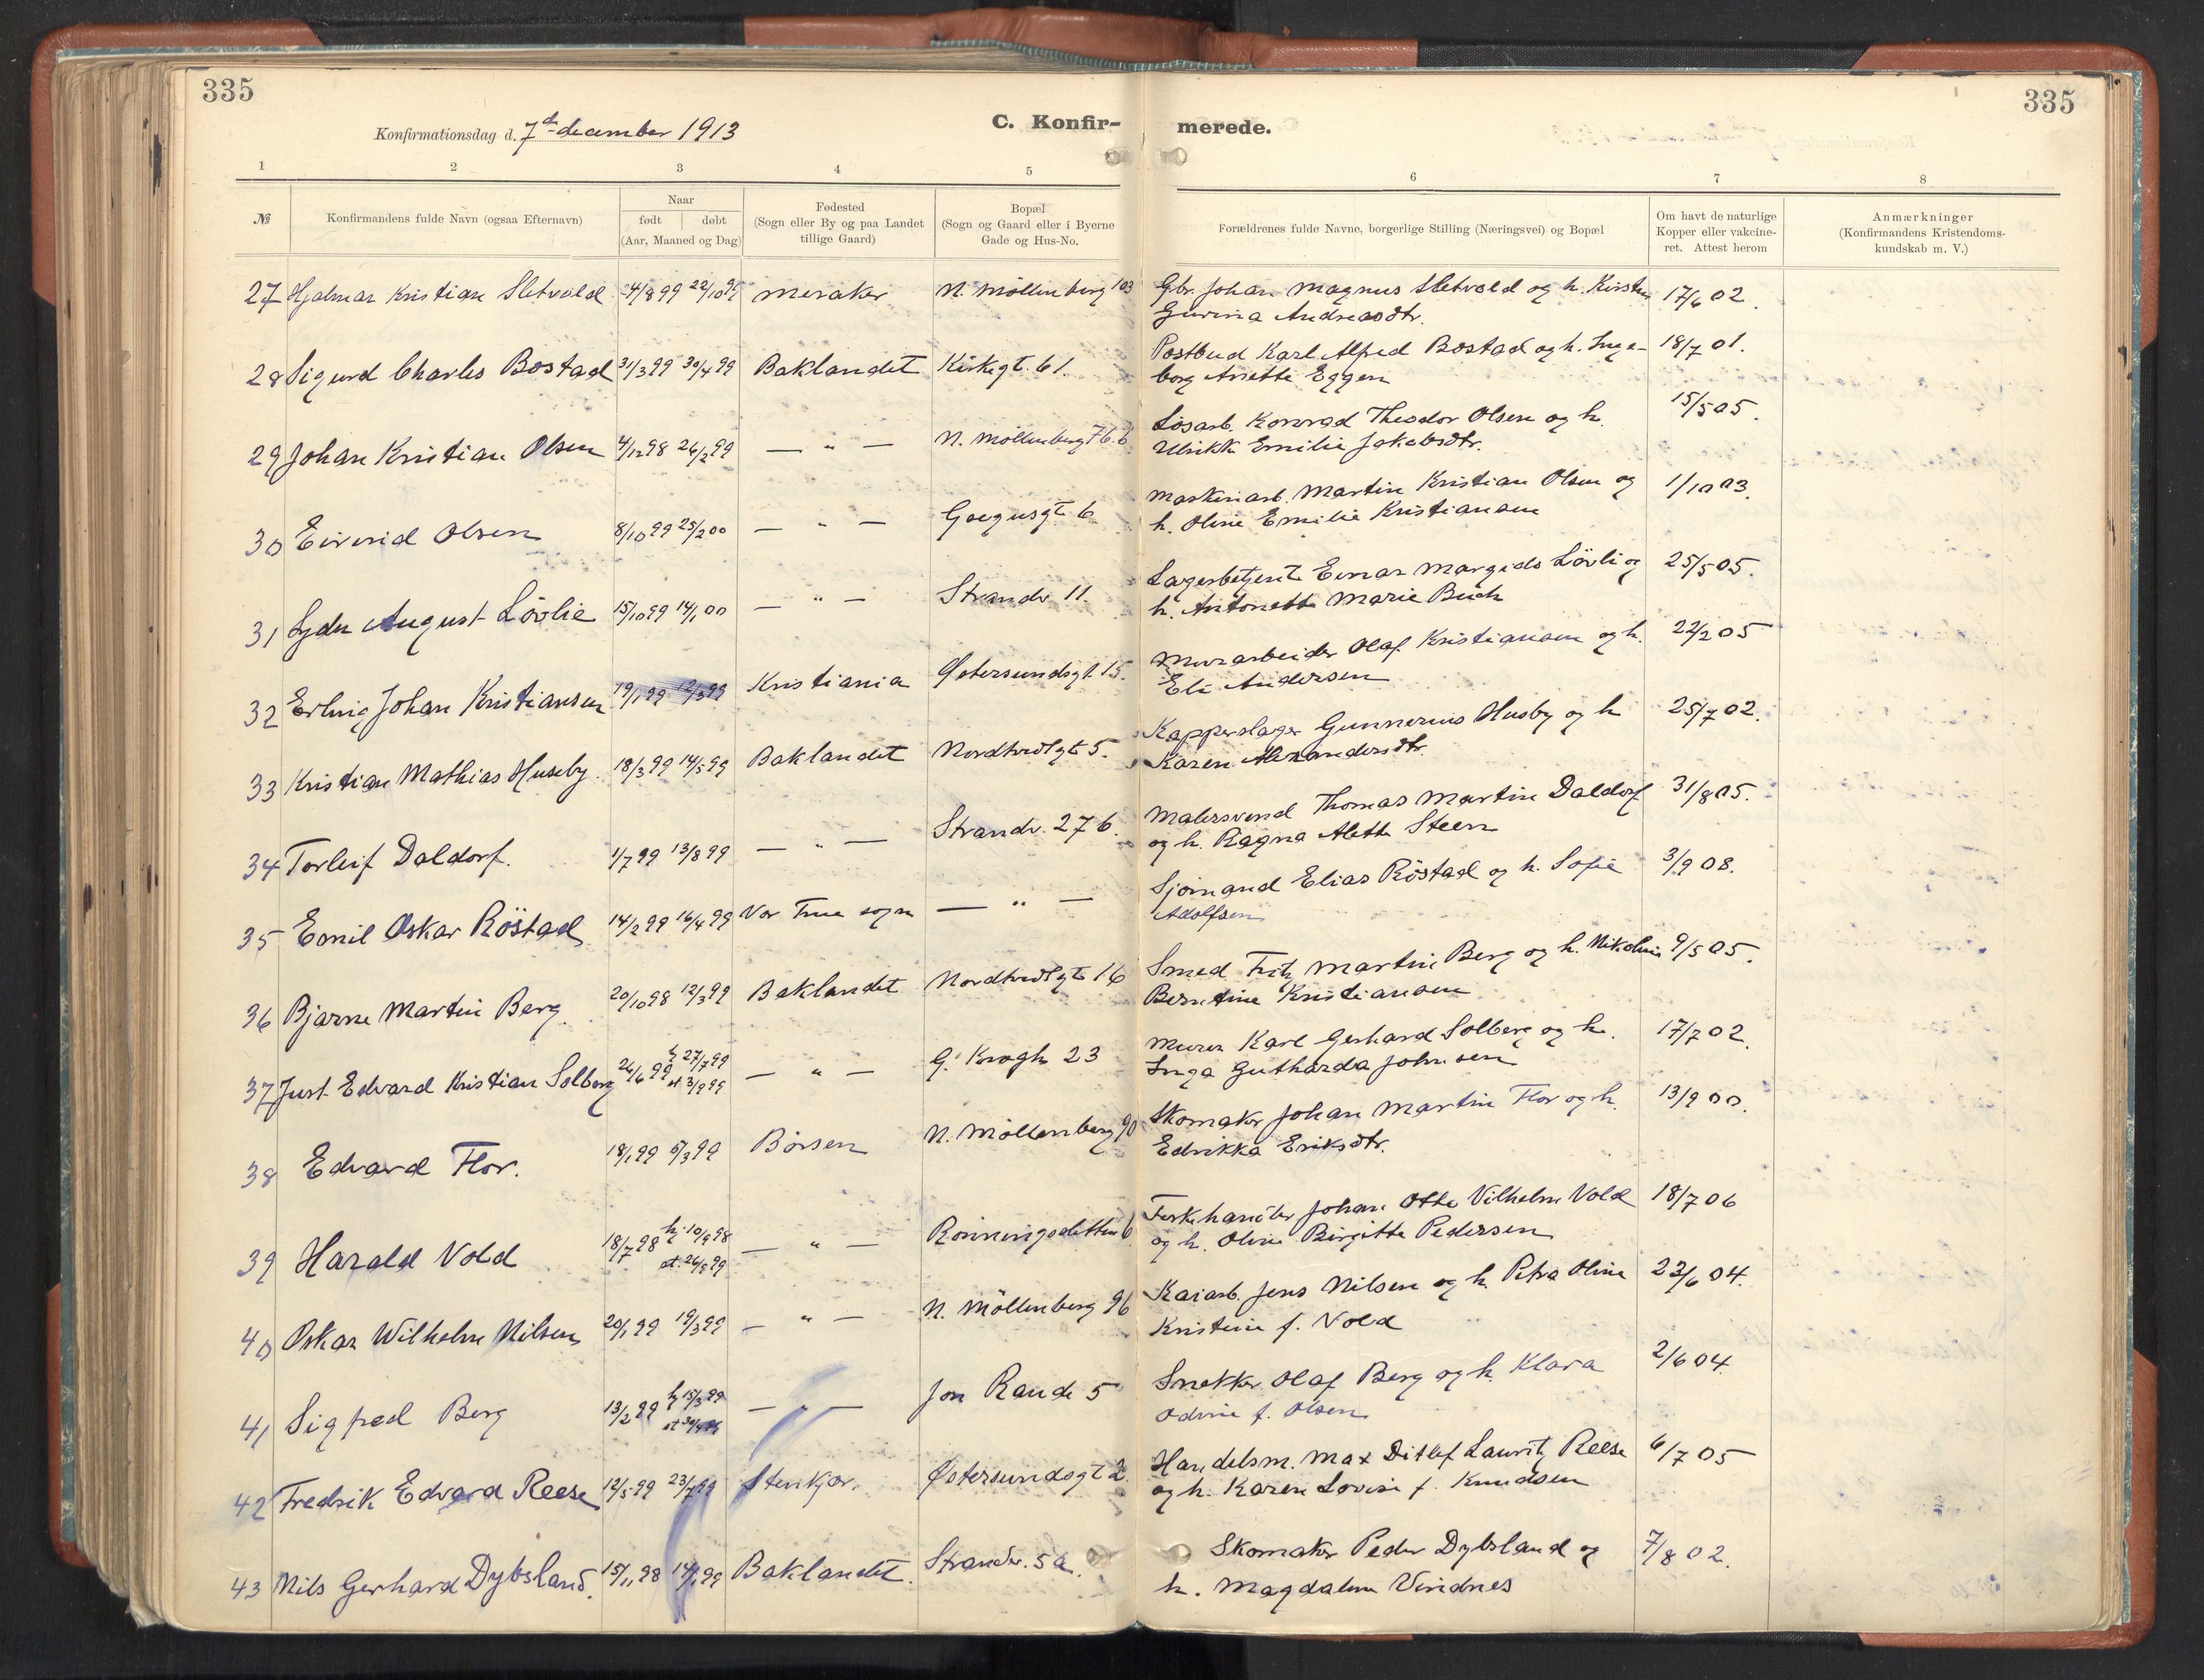 335
335
Konfirmationsdag d. 7de december 1913
C. Konfir-
merede.
1 2 3 4 5 6 7 8
№
Konfirmandens fulde Navn (ogsaa Efternavn)
Naar
født døbt
(Aar, Maaned og Dag)
Fødested
(Sogn eller By og paa Landet
tillige Gaard)
Bopæl
(Sogn og Gaard eller i Byerne
Gade og Hus-No.
Forældrenes fulde Navne, borgerlige Stilling (Næringsvei) og Bopæl
Om havt de naturlige
Kopper eller vakcine-
ret. Attest herom
Anmærkninger
(Konfirmandens Kristendoms-
kundskab m. V.)
27 Hjalmar Kristian Sletvold 24/8 99 22/10 99 Meraker N. Möllenberg 103 Gbr. Johan Magnus Sletvold og h. Kirstine 17/6 02.
Gurina Andreasdtr.
28 Sigurd Charles Bostad 31/3 99 30/4 99 Baklandet Kirkegt. 61. Postbud Karl Alfred Bostad og h. Inge- 18/7 01.
borg Anette Eggen
29 Johan Kristian Olsen 4/12 98 26/2 99 — " — N. Möllenberg 76.b Løsarb. Konrad Theodor Olsen og h. 15/5 05.
Ulrikk Emilie Jakobsdtr.
30 Eivind Olsen 8/10 99 25/2 00 — " — 6 Maskinarb. Martin Kristian Olsen og 1/10 03.
h. Oline Emilie Kristiansen
31 August Lövlie 15/10 99 14/1 00 — " — Strandv. 11. Lagerbetjent Einar Lövli og 25/5 05.
h. Antonette Marie Buch
32 Erling Johan Kristiansen 19/1 99 12/3 99 Kristiania Østersundsgt 15. Murarbeider Olaf Kristiansen og h. 22/2 05
Eli Andersen
33 Kristian Mathias Huseby. 18/3 99 14/5 99 Baklandet Nordtvedtgt 5. Kapperslager Gunnerius Husby og h 25/7 02.
Karen Alexandersdtr.
34 Torleif Daldorf. 1/7 99 13/8 99 — " — Strandv. 27 b. Malersvend Thomas Martin Daldorf 31/8 05.
og h. Ragna Alette Steen
35 Emil Oskar Röstad 14/2 99 16/4 99 Vor Frue sogn — " — Sjömand Elias Röstad og h. Sofie 3/9 08.
Adolfsen
36 Bjarne Martin Berg. 20/10 98 12/3 99 Baklandet Nordtvedtgt 16 Smed Fritz Martin Berg og h. Nikoline 9/5 05.
Berntine Kristiansen
37 Just Edvard Kristian Solberg 26/6 99 h 27/7 99 — " — G. Krogh 23 Murer Karl Gerhard Solberg og h. 17/7 02.
st 3/9 99 Inga Guttharda Johnsen
38 Edvard Flor. 18/1 99 5/3 99 Börsen N. Möllenberg 90 Skomaker Johan Martin Flor og h. 13/9 00.
Edrikka Eriksdtr.
39 Harald Vold 18/7 98 h. 10/9 98 — " — Rönningsletten 6 Fiskehandler Johan Otto Vilhelm Vold 18/7 06
st. 26/5 99 og h. Oline Birgitte Pedersen
40 Oskar Wilhelm Nilsen 20/1 99 19/3 99 — " — N. Möllenberg 96 Kaiarb. Jens Nilsen og h. Petra Oline 23/6 04.
Kristine f. Vold
41 Sigfred Berg 13/2 99 h 15/3 99 — " — Jon Raude 5 Snekker Olaf Berg og h. Klara 2/6 04.
Odine f. Olsen
42 Fredrik Edvard Reese 12/5 99 23/7 99 Stenkjær. Østersundsgt 2. Handelsm. Max Ditlef Lauritz Reese 6/7 05
og h. Karen Lovise f. Knudsen
43 Nils Gerhard Dybsland. 15/11 98 14/1 99 Baklandet. Strandv. 5a. Skomaker Peder Dybsland og 7/8 02.
h. Magdalene Vindnes